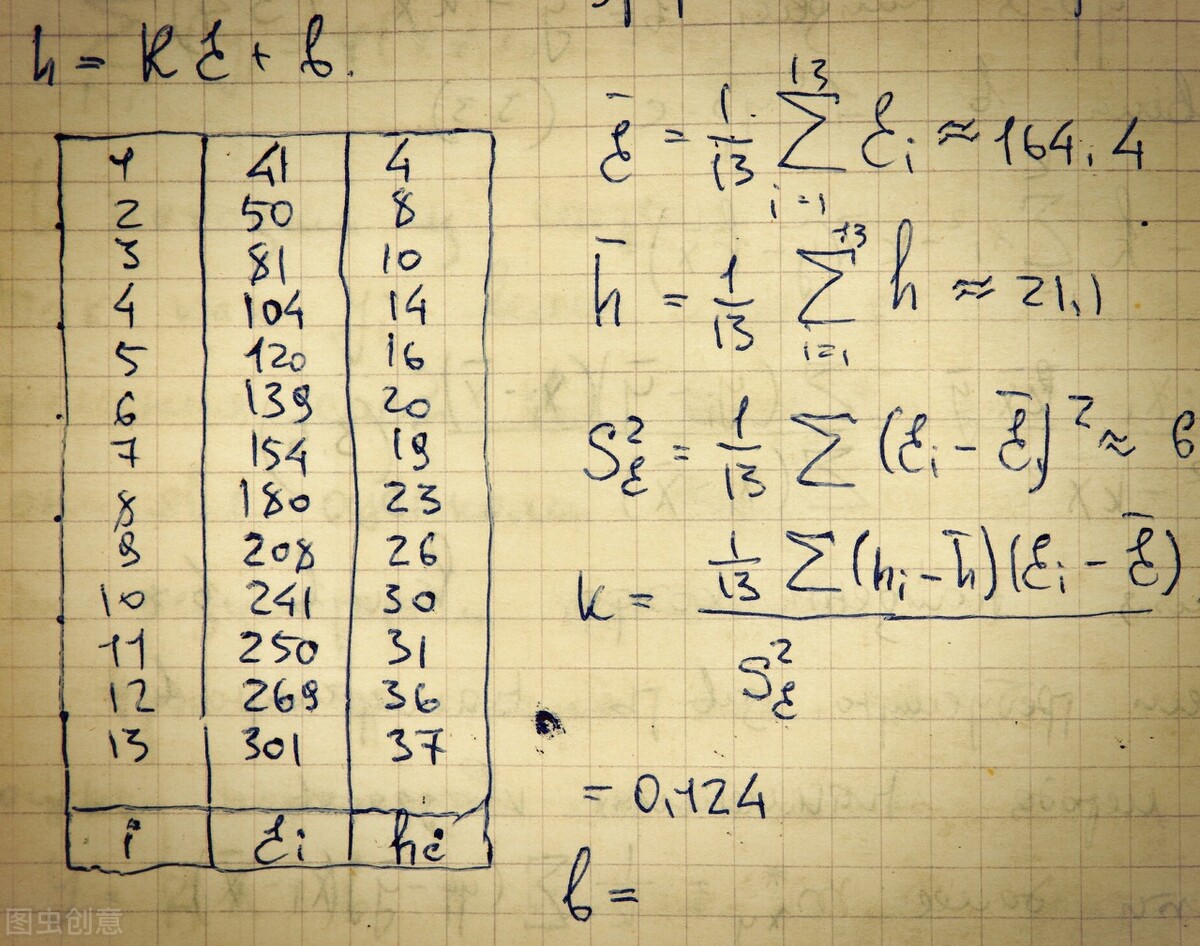 h = kξ + b.
1 41 4
2 50 8
3 81 10
4 104 14
5 120 16
6 139 20
7 154 19
8 180 23
9 208 26
10 241 30
11 250 31
12 269 36
13 301 37
i ξi hi
ξ̄ = 1/13 ∑_{i=1}^{13} ξi ≈ 164,4
h̄ = 1/13 ∑_{i=1}^{13} h ≈ 21,1
S²_ξ = 1/13 ∑ (ξi - ξ̄)² ≈ 6
k = (1/13 ∑ (hi - h̄)(ξi - ξ̄)) / S²_ξ
= 0,124
b =
图虫创意